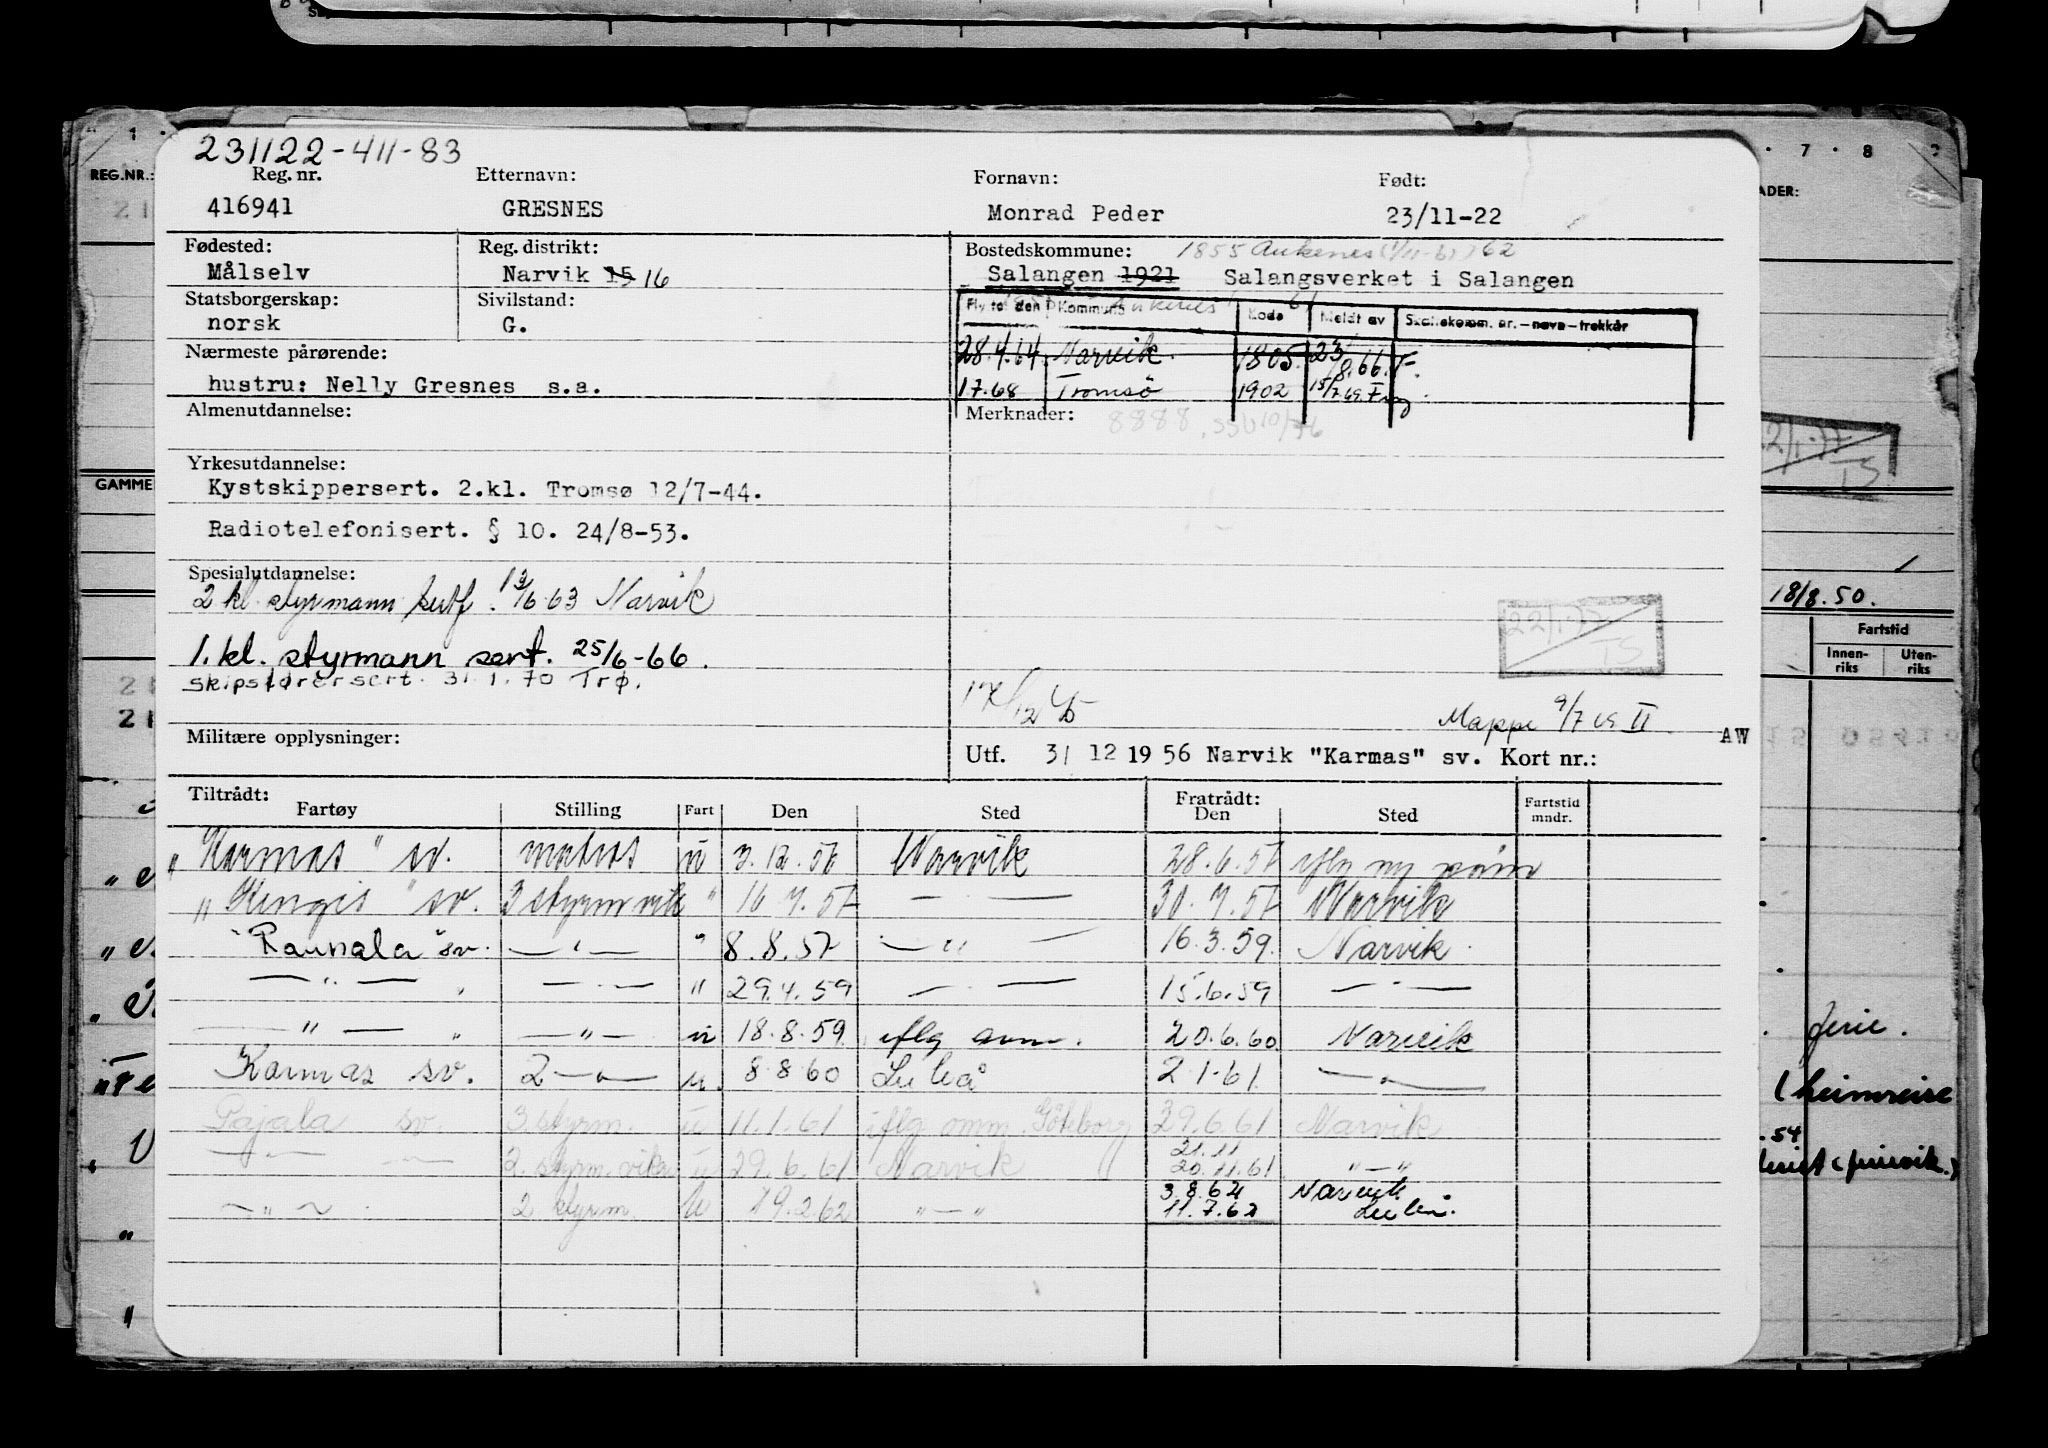 231122-411-83
Reg. nr. Etternavn: Fornavn: Født:
416941 GRESNES Monrad Peder 23/11-22
Fødested: Reg. distrikt: Bostedskommune: 1855 Ankenes
Målselv Narvik 15 16 Salangen 1921 Salangsverket i Salangen
Statsborgerskap: Sivilstand:
norsk G.
Kommune Kode Meldt av
28.4.64. Narvik. 1805. 23/8.66.
1.7.68 Tromsø 1902 15/7.69.
Nærmeste pårørende:
hustru: Nelly Gresnes s.a.
Almenutdannelse: Merknader:
8888
Yrkesutdannelse:
Kystskippersert. 2.kl. Tromsø 12/7-44.
Radiotelefonisert. § 10. 24/8-53.
Spesialutdannelse:
2 kl. styrmann Narvik
1. kl. styrmann sert. 25/6-66.
skipsførersert. 31.1.70 Trø.
22/1-77
TS
Mappe 9/7 69 II
Militære opplysninger:
Utf. 31 12 19 56 Narvik "Karmas" sv. Kort nr.:
AW
Tiltrådt: Fratrådt: Fartstid
Fartøy Stilling Fart Den Sted Den Sted mndr.
"Karmas" sv. matros u 3.12.56 Narvik 28.6.57
"Kengis" sv. 3 styrm vik " 16.7.57 — — 30.7.57 Narvik
"Raunala" sv. — " — " 8.8.57 — " — 16.3.59. Narvik.
— " — " — " — " 29.4.59 — " — 15.6.59 — " —
— " — " — " — u 18.8.59 iflg omm. 20.6.60 Narvik
Karmas sv. 2 — " — u. 8.8.60 Luleå 2.1.61. — " —
Pajala sv. 3 styrm. u 11.1.61 iflg omm. Göteborg 29.6.61 Narvik
21.11
— " — 2. styrm. vikar u 29.6.61 Narvik 20.11.61 " — "
3.8.62 Narvik
— " — 2 styrm. u 19.2.62 " — " 11.7.62 Luleå.
REG.NR.:
GAMME
18/8.50.
Fartstid
Innen-
riks
Uten-
riks
ferie.
heimreise